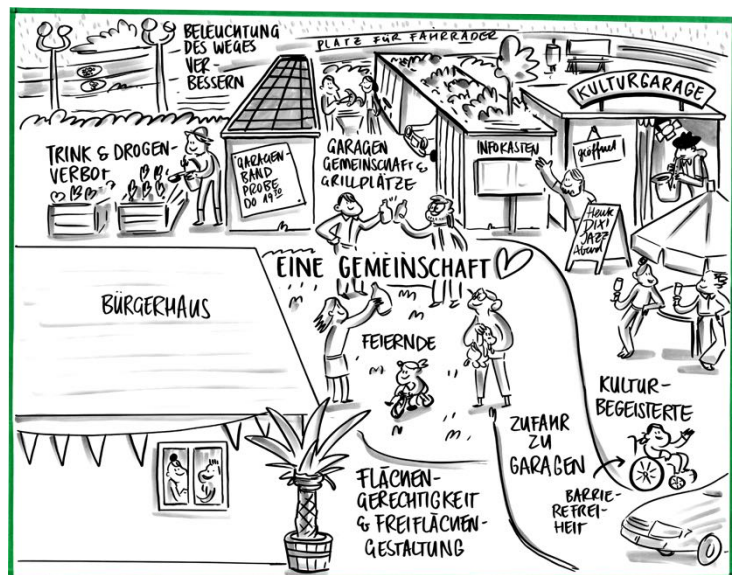 BELEUCHTUNG
DES WEGES
VER
BESSERN
PLATZ FÜR FAHRRÄDER
KULTURGARAGE
TRINK & DROGEN-
VERBOT
GARAGEN-
BAND
PROBE
DO 19³⁰
GARAGEN
GEMEINSCHAFT &
GRILLPLÄTZE
INFOKASTEN
geöffnet
Heute
DIXI
JAZZ
Abend
EINE GEMEINSCHAFT
BÜRGERHAUS
FEIERNDE
KULTUR-
BEGEISTERTE
ZUFAHR
ZU
GARAGEN
BARRIE-
REFREI-
HEIT
FLÄCHEN-
GERECHTIGKEIT
& FREIFLÄCHEN-
GESTALTUNG